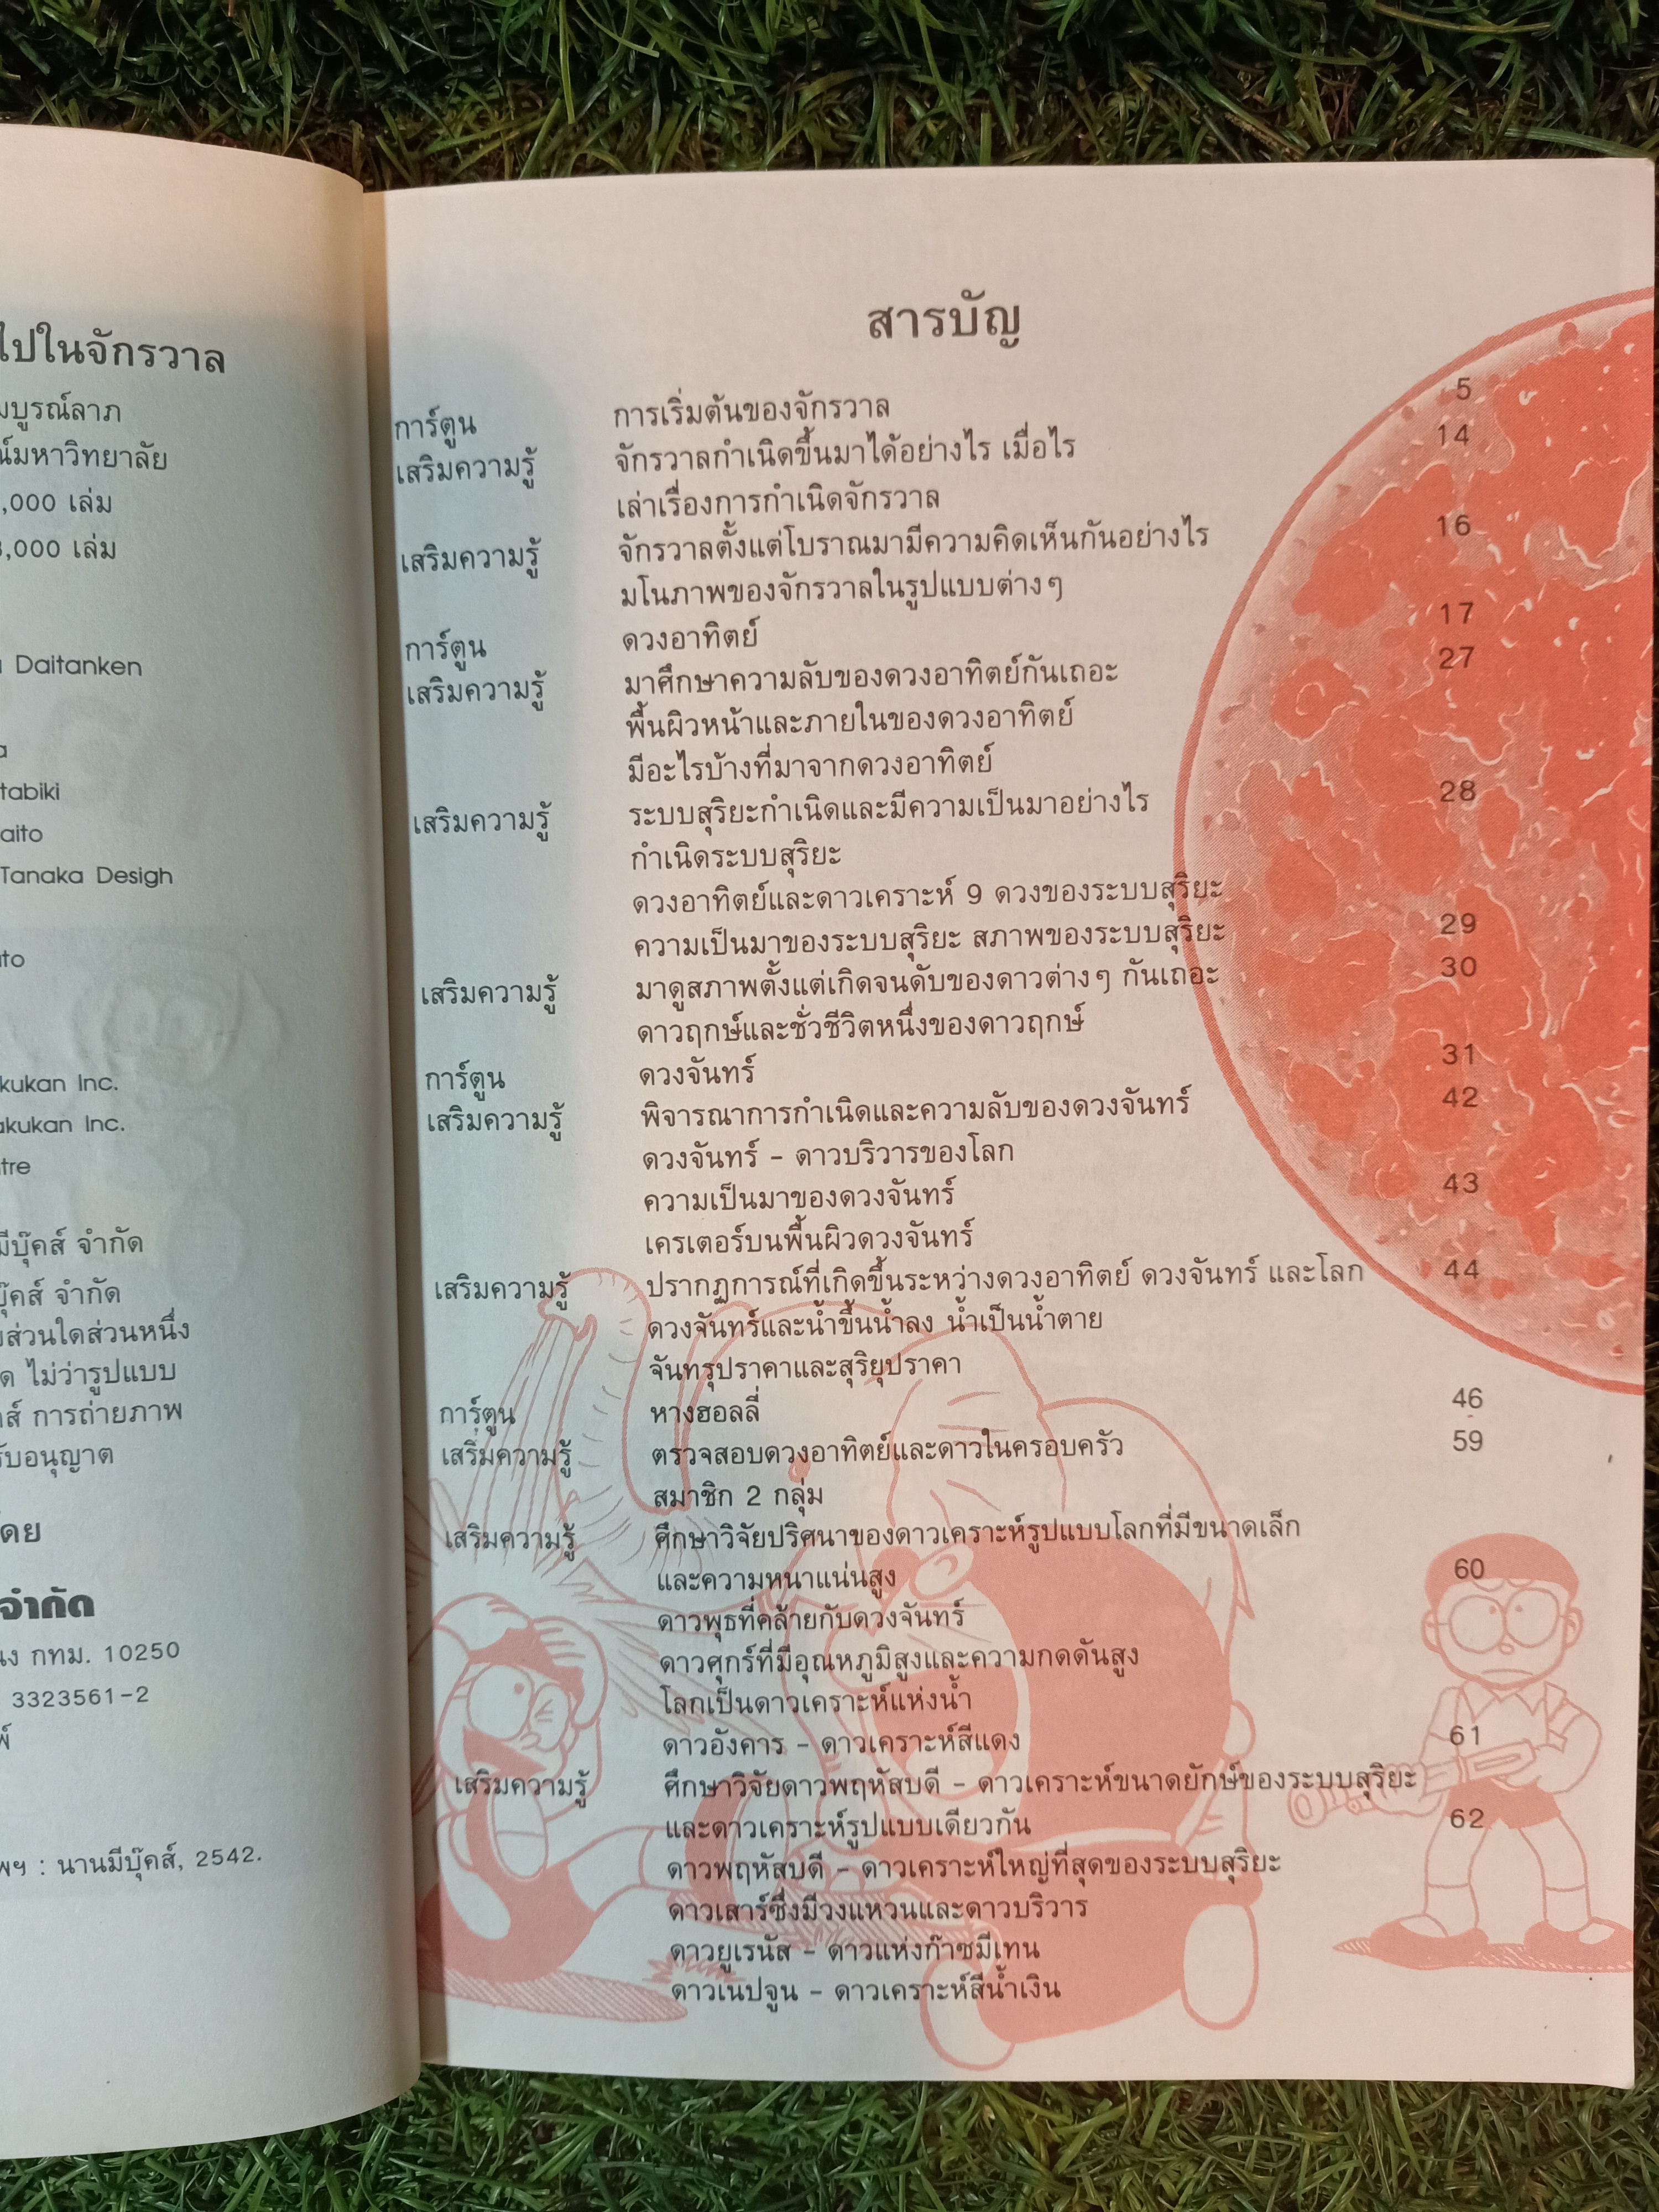 ไปในจักรวาล
มบูรณ์ลาภ
น์มหาวิทยาลัย
,000 เล่ม
3,000 เล่ม
Daitanken
a
tabiki
aito
Tanaka Desigh
ato
kukan Inc.
akukan Inc.
ntre
มีบุ๊คส์ จำกัด
บุ๊คส์ จำกัด
ส่วนใดส่วนหนึ่ง
ด ไม่ว่ารูปแบบ
าส์ การถ่ายภาพ
รับอนุญาต
ดย
จำกัด
นง กทม. 10250
3323561-2
พ์
พฯ : นานมีบุ๊คส์, 2542.
สารบัญ
การ์ตูน การเริ่มต้นของจักรวาล 5
เสริมความรู้ จักรวาลกำเนิดขึ้นมาได้อย่างไร เมื่อไร 14
เล่าเรื่องการกำเนิดจักรวาล
เสริมความรู้ จักรวาลตั้งแต่โบราณมามีความคิดเห็นกันอย่างไร 16
มโนภาพของจักรวาลในรูปแบบต่างๆ
การ์ตูน ดวงอาทิตย์ 17
เสริมความรู้ มาศึกษาความลับของดวงอาทิตย์กันเถอะ 27
พื้นผิวหน้าและภายในของดวงอาทิตย์
มีอะไรบ้างที่มาจากดวงอาทิตย์
เสริมความรู้ ระบบสุริยะกำเนิดและมีความเป็นมาอย่างไร 28
กำเนิดระบบสุริยะ
ดวงอาทิตย์และดาวเคราะห์ 9 ดวงของระบบสุริยะ
ความเป็นมาของระบบสุริยะ สภาพของระบบสุริยะ 29
เสริมความรู้ มาดูสภาพตั้งแต่เกิดจนดับของดาวต่างๆ กันเถอะ 30
ดาวฤกษ์และชั่วชีวิตหนึ่งของดาวฤกษ์
การ์ตูน ดวงจันทร์ 31
เสริมความรู้ พิจารณาการกำเนิดและความลับของดวงจันทร์ 42
ดวงจันทร์ - ดาวบริวารของโลก
ความเป็นมาของดวงจันทร์ 43
เครเตอร์บนพื้นผิวดวงจันทร์
เสริมความรู้ ปรากฏการณ์ที่เกิดขึ้นระหว่างดวงอาทิตย์ ดวงจันทร์ และโลก 44
ดวงจันทร์และน้ำขึ้นน้ำลง น้ำเป็นน้ำตาย
จันทรุปราคาและสุริยุปราคา
การ์ตูน หางฮอลลี่ 46
เสริมความรู้ ตรวจสอบดวงอาทิตย์และดาวในครอบครัว 59
สมาชิก 2 กลุ่ม
เสริมความรู้ ศึกษาวิจัยปริศนาของดาวเคราะห์รูปแบบโลกที่มีขนาดเล็ก
และความหนาแน่นสูง 60
ดาวพุธที่คล้ายกับดวงจันทร์
ดาวศุกร์ที่มีอุณหภูมิสูงและความกดดันสูง
โลกเป็นดาวเคราะห์แห่งน้ำ
ดาวอังคาร - ดาวเคราะห์สีแดง 61
เสริมความรู้ ศึกษาวิจัยดาวพฤหัสบดี - ดาวเคราะห์ขนาดยักษ์ของระบบสุริยะ
และดาวเคราะห์รูปแบบเดียวกัน 62
ดาวพฤหัสบดี - ดาวเคราะห์ใหญ่ที่สุดของระบบสุริยะ
ดาวเสาร์ซึ่งมีวงแหวนและดาวบริวาร
ดาวยูเรนัส - ดาวแห่งก๊าซมีเทน
ดาวเนปจูน - ดาวเคราะห์สีน้ำเงิน